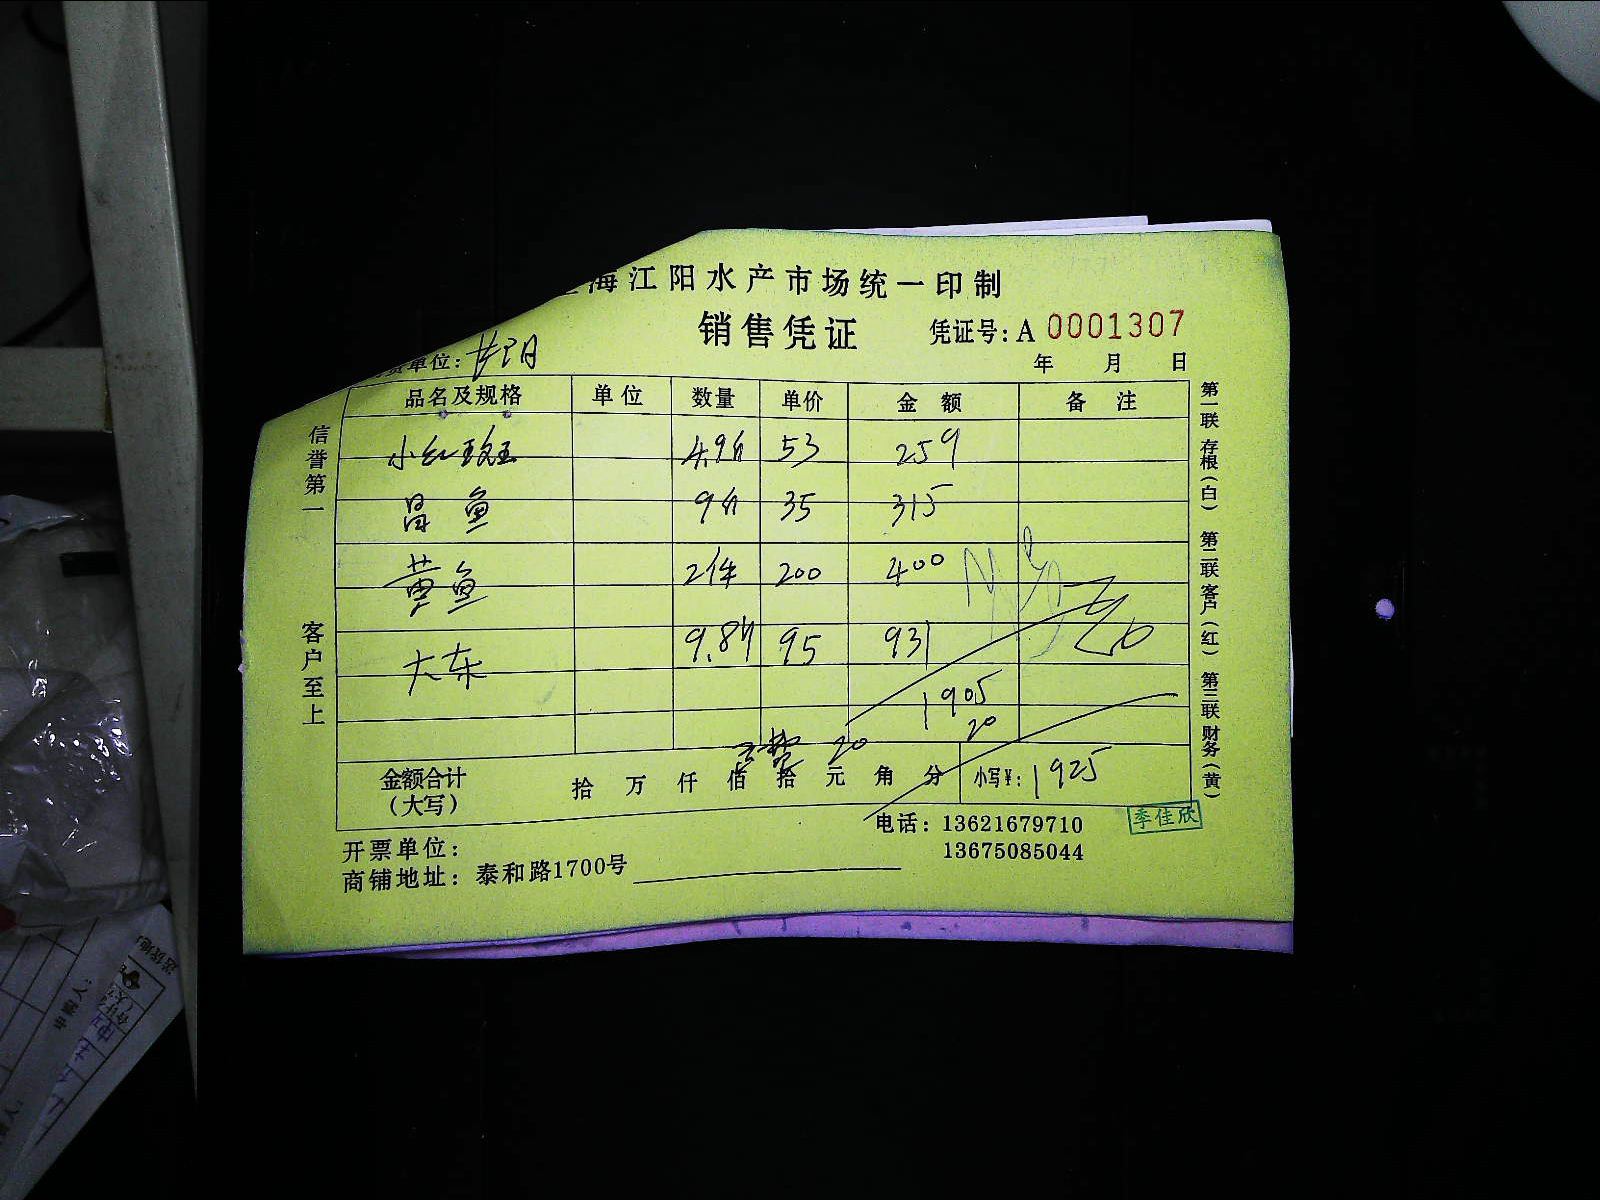 海江阳水产市场统一印制
销售凭证 凭证号：A 0001307
单位：
年 月 日
品名及规格 单位 数量 单价 金额 备注
小红斑 4.9斤 53 259
昌鱼 9斤 35 315
黄鱼 2件 200 400
大东 9.8斤 95 931
1905
20 20
金额合计（大写） 拾 万 仟 佰 拾 元 角 分 小写¥：1925
开票单位：
电话：13621679710
13675085044
李佳欣
商铺地址：泰和路1700号
信誉第一 客户至上
第一联 存根（白） 第二联 客户（红） 第三联 财务（黄）